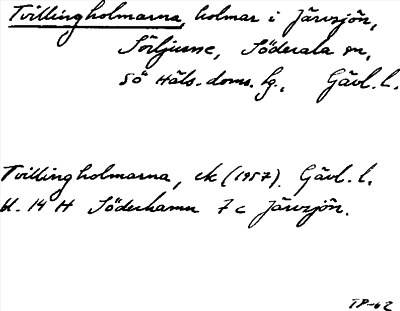 Tvillingholmarna, holmar i Järvsjön,
Sörljusne, Söderala sn,
Sö Häls. doms. hg., Gävl. l.
Tvillingholmarna, ek (1957). Gävl. l.
bl. 14 H Söderhamn 7 c Järvsjön.
TP-62